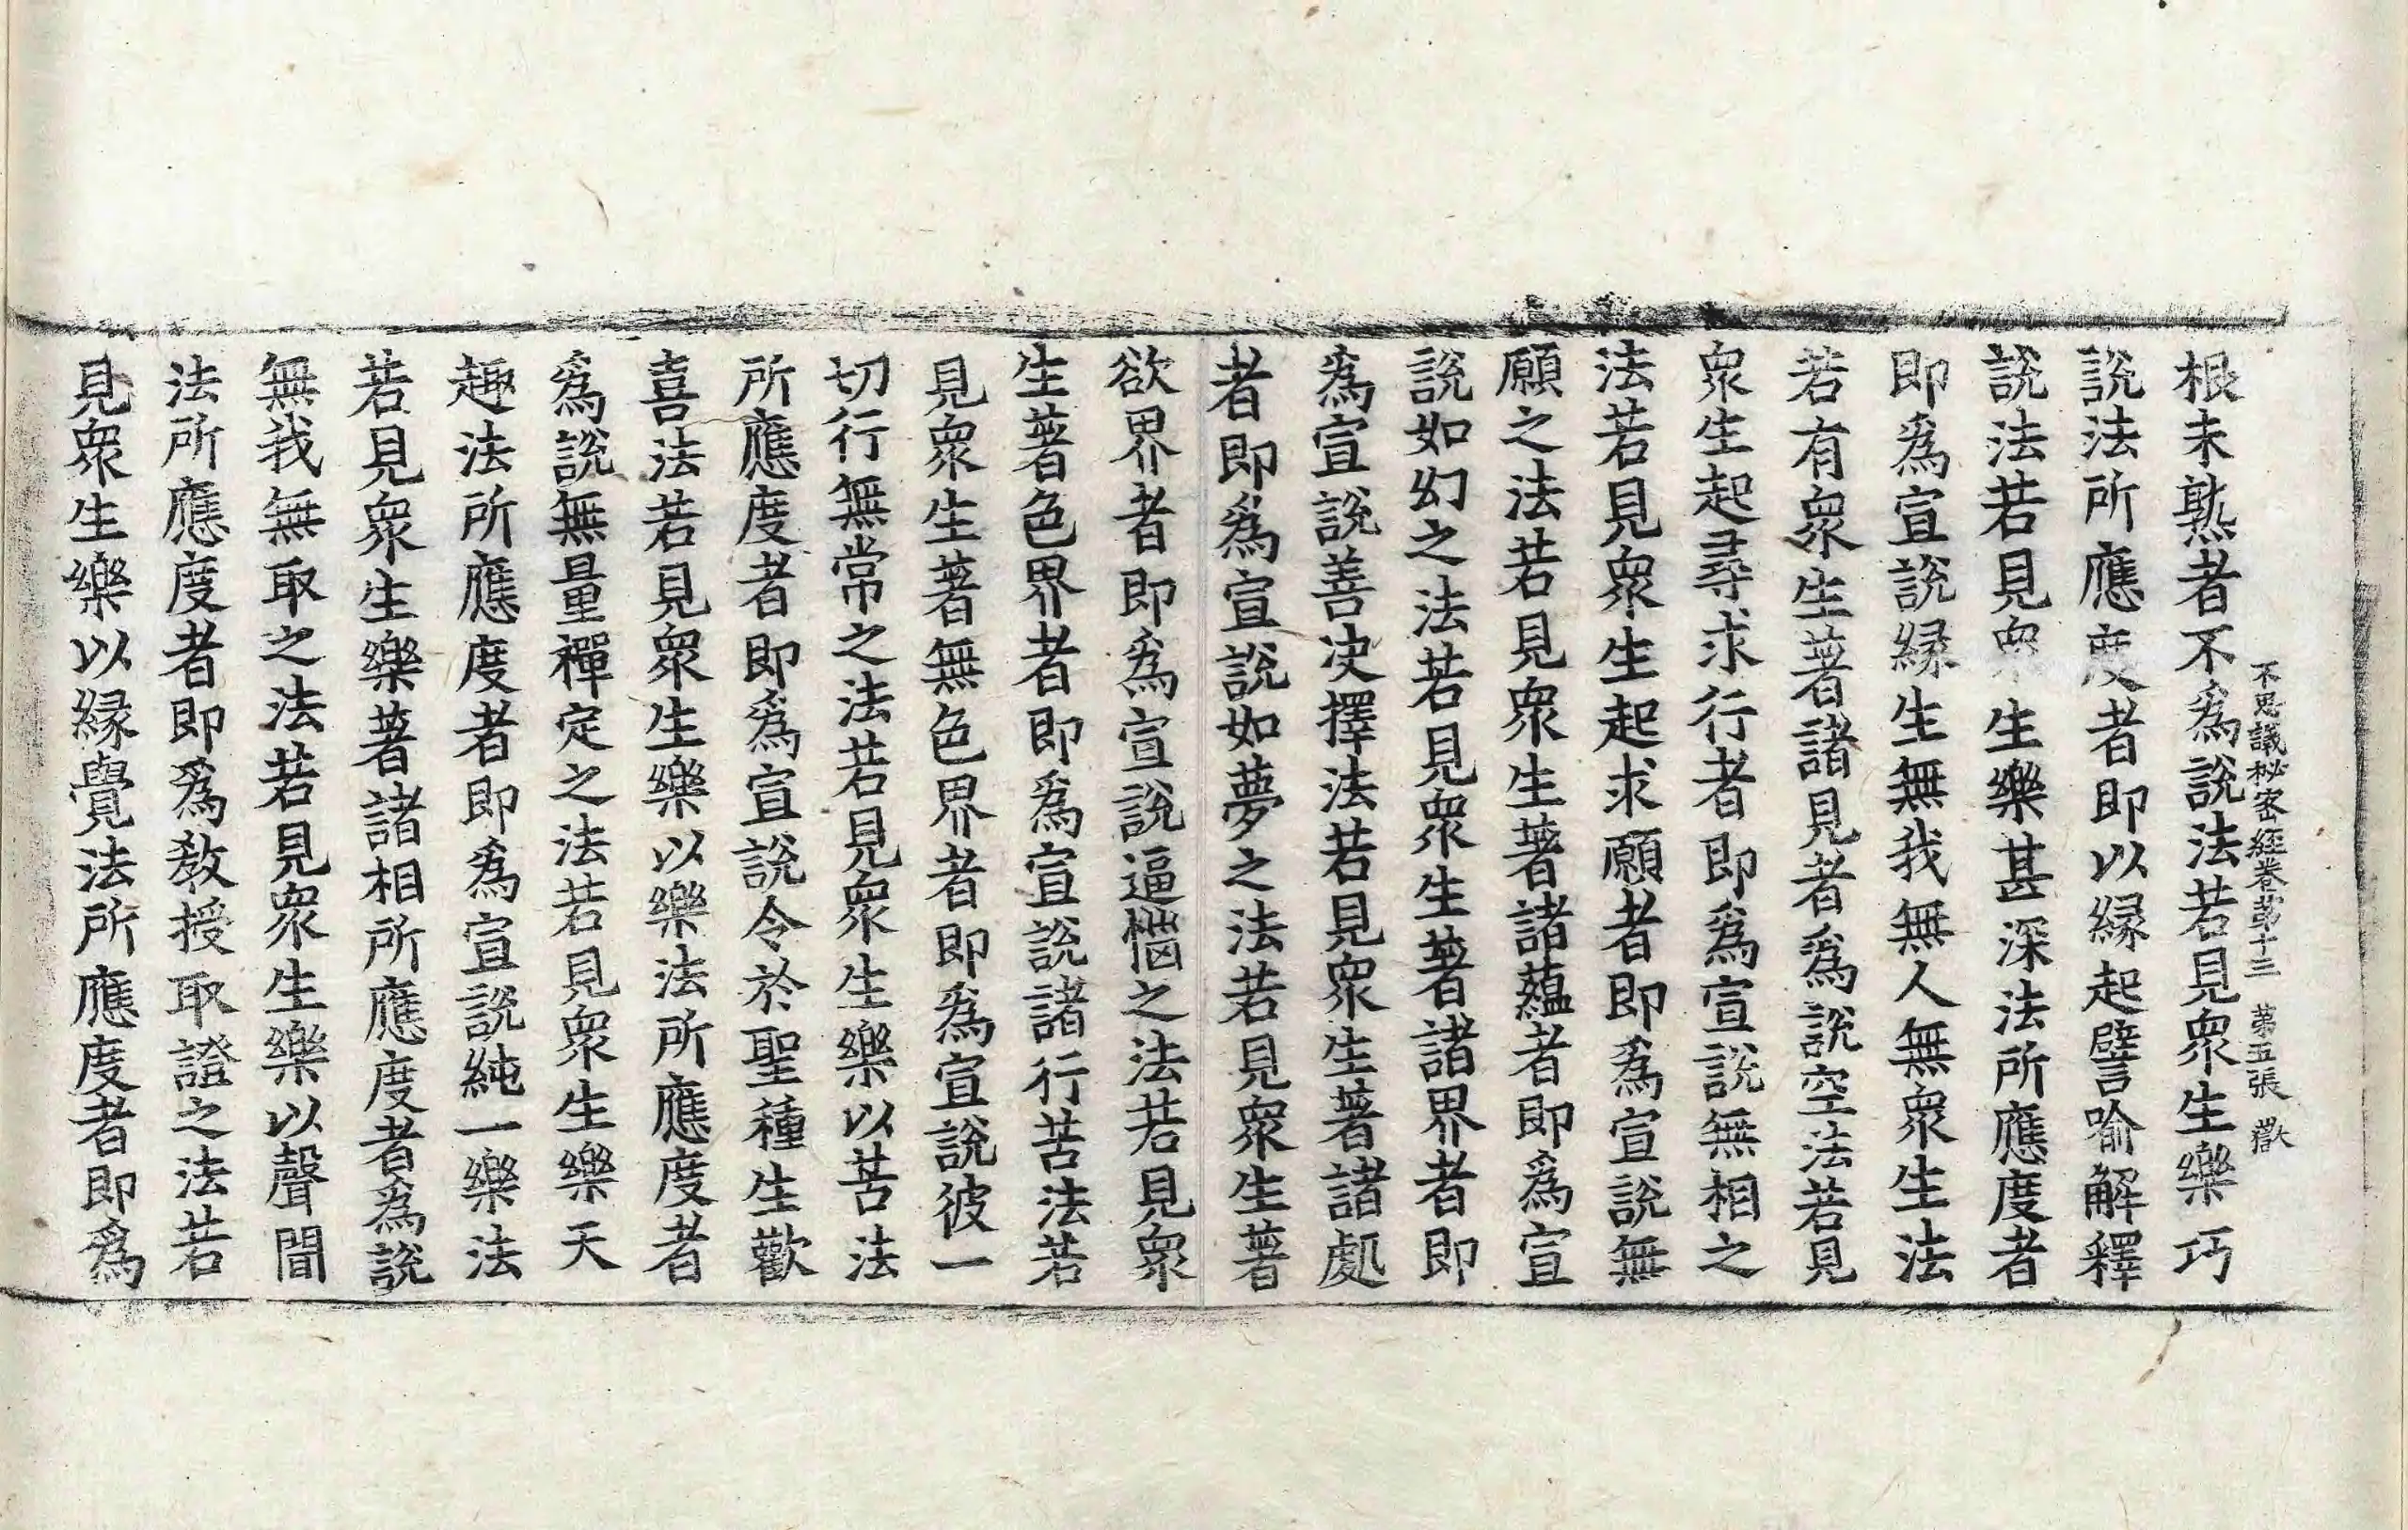 不思議秘密經卷苐十三　第五張　歡
根未熟者不爲說法若見衆生樂巧
說法所應度者即以縁起譬喻解釋
說法若見衆生樂甚深法所應度者
即爲宣說縁生無我無人無衆生法
若有衆生著諸見者爲說空法若見
衆生起尋求行者即爲宣說無相之
法若見衆生起求願者即爲宣說無
願之法若見衆生著諸蘊者即爲宣
說如幻之法若見衆生著諸界者即
爲宣說善决擇法若見衆生著諸處
者即爲宣說如夢之法若見衆生著
欲界者即爲宣說逼惱之法若見衆
生著色界者即爲宣說諸行苦法若
見衆生著無色界者即爲宣說彼一
切行無常之法若見衆生樂以苦法
所應度者即爲宣說令於聖種生歡
喜法若見衆生樂以樂法所應度者
爲說無量禪定之法若見衆生樂天
趣法所應度者即爲宣說純一樂法
若見衆生樂著諸相所應度者爲說
無我無取之法若見衆生樂以聲聞
法所應度者即爲敎授取證之法若
見衆生樂以縁覺法所應度者即爲